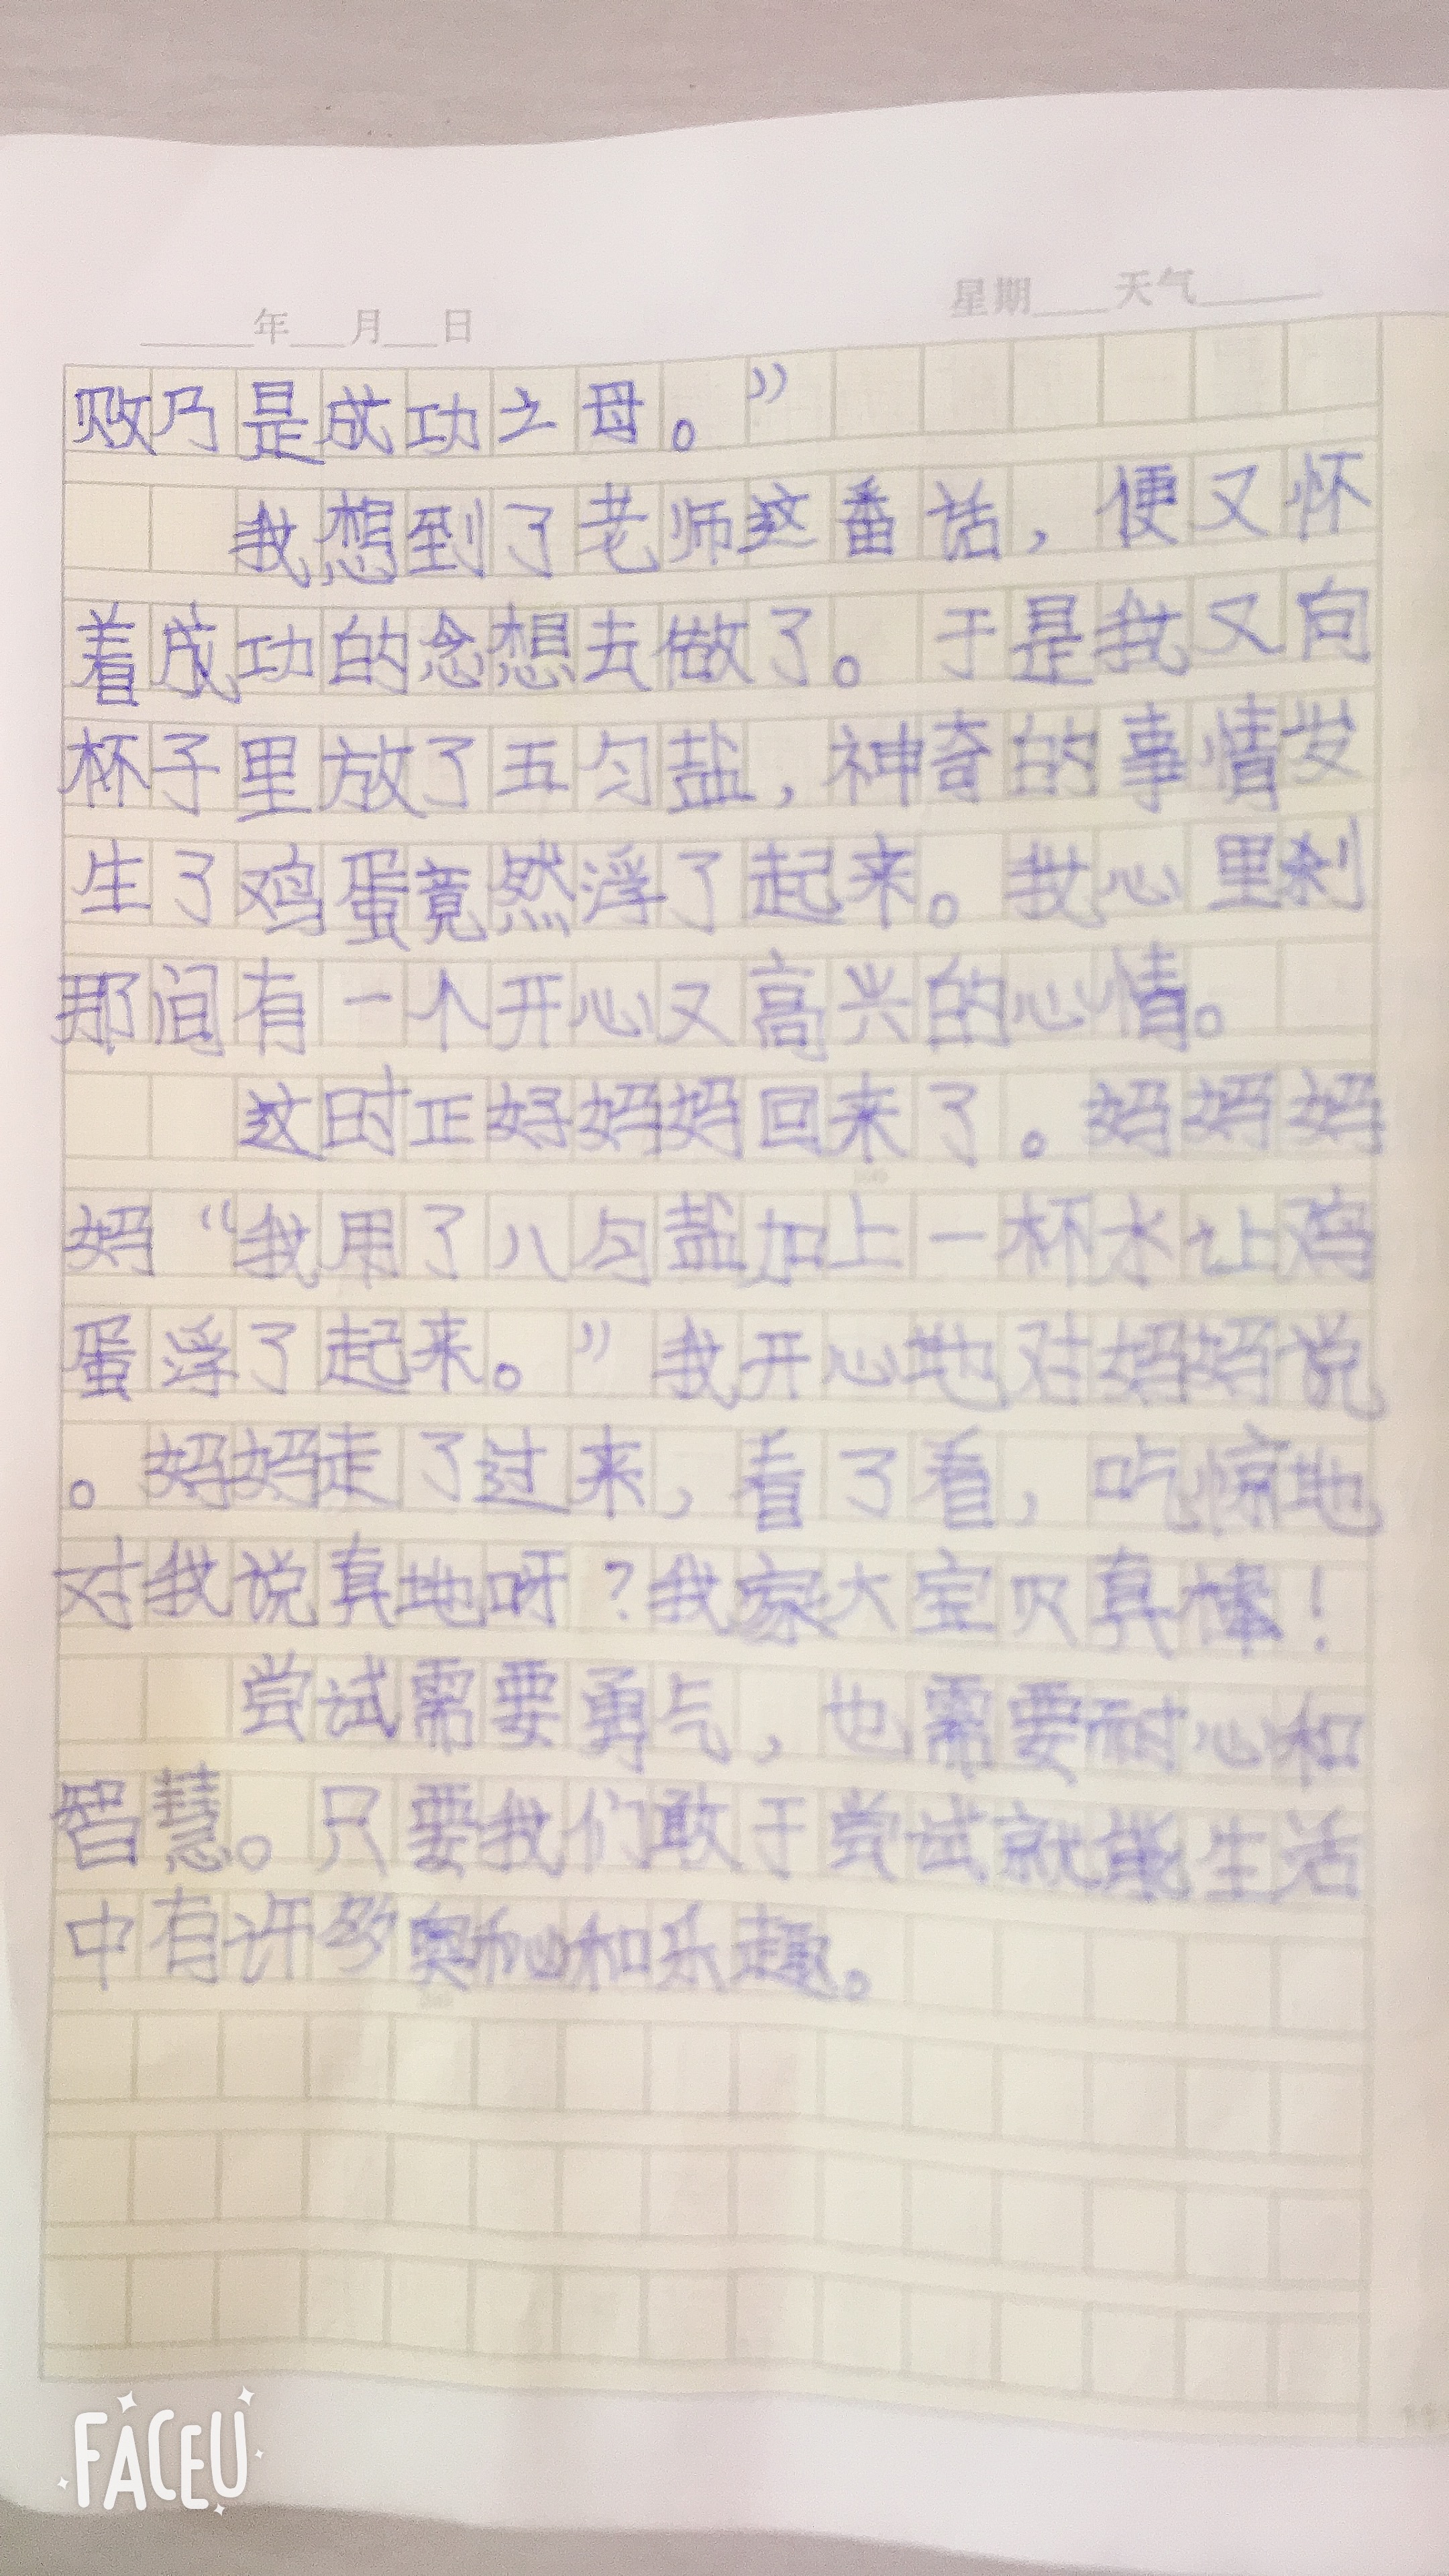 星期____天气______
______年___月___日
败乃是成功之母。”
我想到了老师这番话，便又怀
着成功的念想去做了。于是我又向
杯子里放了五勺盐，神奇的事情发
生了鸡蛋竟然浮了起来。我心里刹
那间有一个开心又高兴的心情。
这时正好妈妈回来了。妈妈妈
妈“我用了八勺盐加上一杯水让鸡
蛋浮了起来。”我开心地对妈妈说
。妈妈走了过来，看了看，吃惊地
对我说真地呀？我家大宝贝真棒！
尝试需要勇气，也需要耐心和
智慧。只要我们敢于尝试就能生活
中有许多奥秘和乐趣。
FACEU